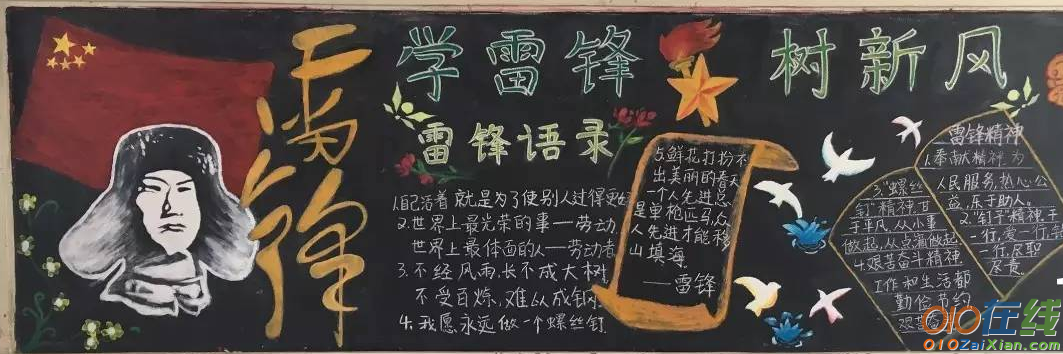 雷锋
学雷锋
树新风
雷锋语录
1.自己活着就是为了使别人过得更好
2.世界上最光荣的事—劳动
世界上最体面的人—劳动者
3.不经风雨,长不成大树
不受百炼,难以成钢
4.我愿永远做一个螺丝钉
5.鲜花打扮不
出美丽的春天
一个人先进总
是单枪匹马,众
人先进才能移
山填海.
——雷锋
雷锋精神
1.奉献精神为
人民服务,热心公
益,乐于助人。
2."钉子"精神干
一行,爱一行,
一行,尽职
尽责.
3."螺丝
钉"精神甘
于平凡,从小事
做起,从点滴做起.
4.艰苦奋斗精神
工作和生活都
勤俭节约
艰苦奋
010在线
010ZaiXian.com